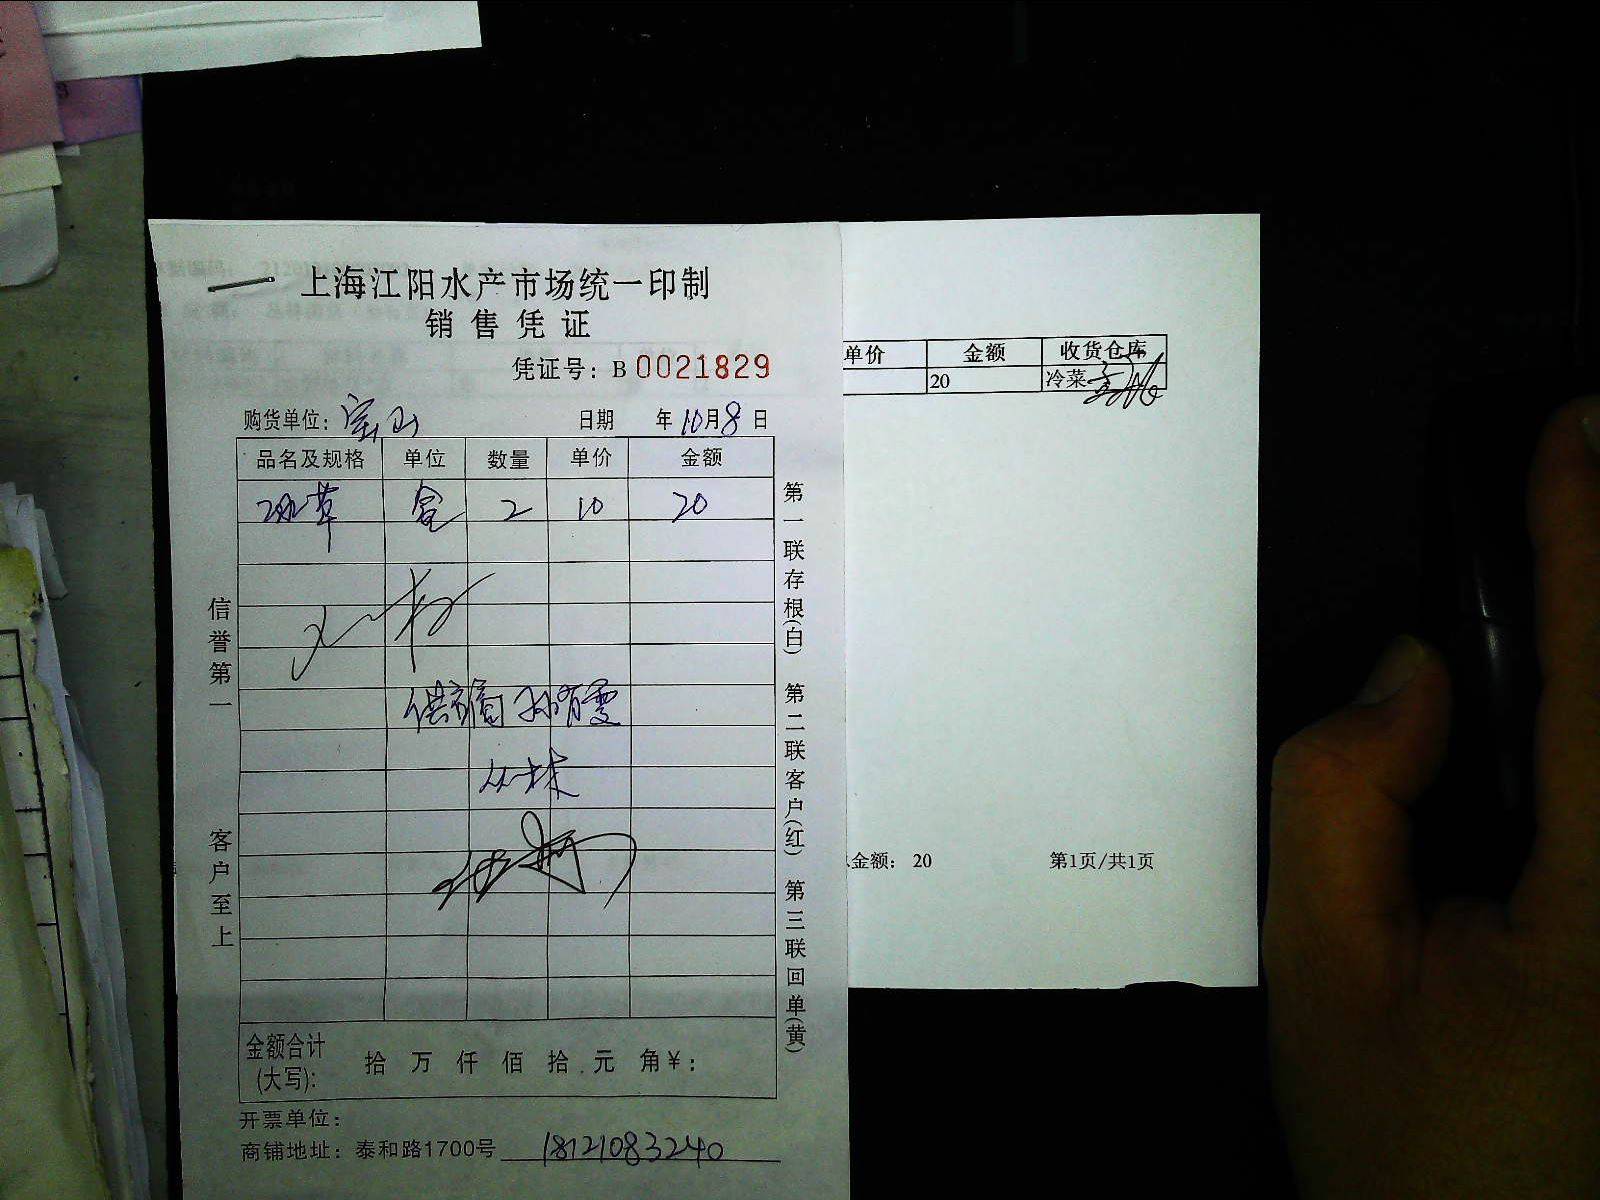 上海江阳水产市场统一印制
销售凭证
凭证号：B 0021829
购货单位：宝山 日期 年10月8日
品名及规格 单位 数量 单价 金额
冰草 盒 2 10 20
供应商
丛林
金额合计(大写)： 拾 万 仟 佰 拾 元 角¥：
开票单位：
商铺地址：泰和路1700号 18121083240
信誉第一 客户至上
第一联存根(白) 第二联客户(红) 第三联回单(黄)
单价 金额 收货仓库
20 冷菜
金额： 20 第1页/共1页